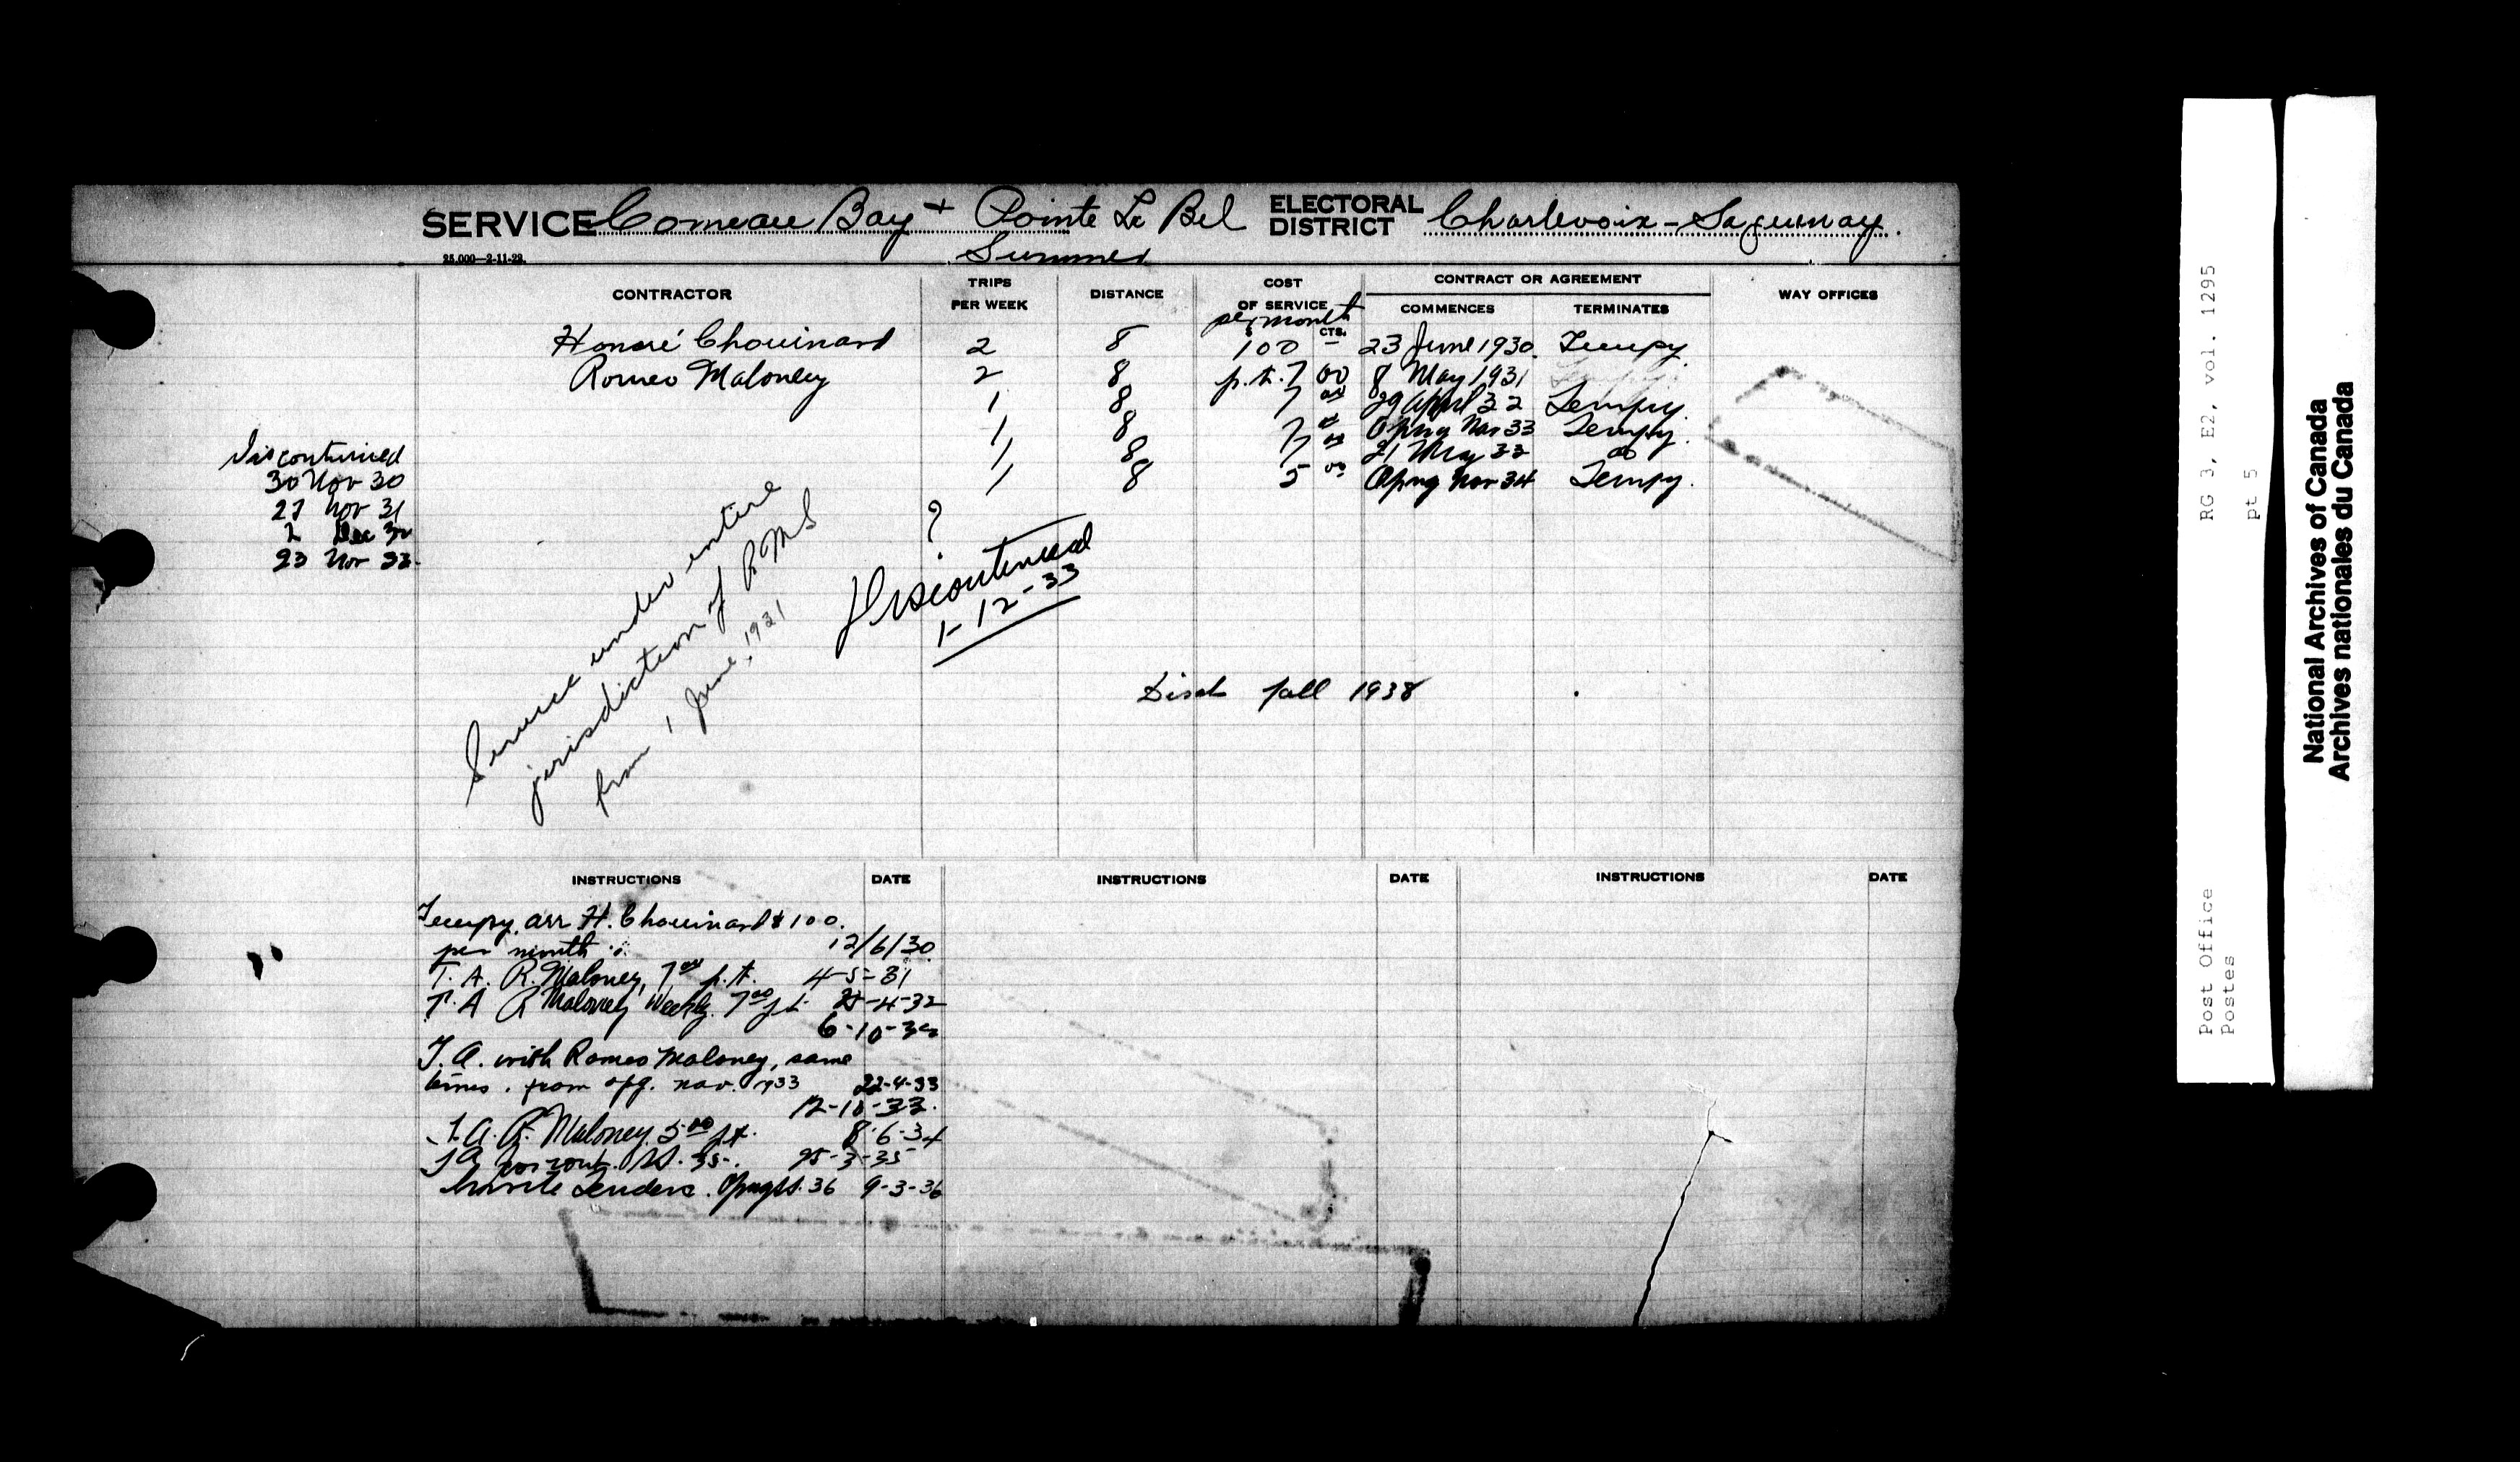 SERVICE Comeau Bay + Pointe Le Bel ELECTORAL DISTRICT Charlevoix - Saguenay.
25,000—2-11-29. Summer
CONTRACTOR TRIPS PER WEEK DISTANCE COST OF SERVICE per month $ CTS. CONTRACT OR AGREEMENT COMMENCES TERMINATES WAY OFFICES
Honoré Chouinard 2 8 100 – 23 June 1930. Tempy.
Romeo Maloney 2 8 p.t. 7 00 8 May 1931
1 8 7 00 29 April 32 Tempy.
1 8 7 00 Opng Nav 33 Tempy.
1 8 7 00 21 May 33 do
1 8 5 00 Opng Nav 34 Tempy.
Discontinued
30 Nov 30
27 Nov 31
2 Dec 32
23 Nov 33.
Service under entire
jurisdiction of RMS
from 1 June, 1931
?
Discontinued
1-12-33
Disct fall 1938
INSTRUCTIONS DATE INSTRUCTIONS DATE INSTRUCTIONS DATE
Tempy. arr H. Chouinard $100.
per month 12/6/30
T. A. R. Maloney, 7 00 p.t. 4-5-31
T. A R Maloney Weekly. 7 00 p t -4-32
6-10-32
T.A. with Romeo Maloney, same
terms. from opg. nav. 1933 22-4-33
12-10-33.
T.A. R. Maloney 5 00 p.t. 8-6-34
T A 35. 25-3-35
Invite Tenders. Opng 36 9-3-36
Post Office RG 3, E2, vol. 1295
Postes pt 5
National Archives of Canada
Archives nationales du Canada